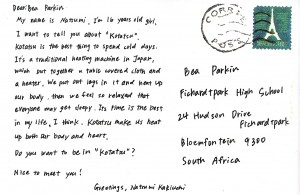 Dear. Bea Parkin
My name is Natsumi. I'm 16 years old girl,
I want to tell you about "Kotatsu".
Kotatsu is the best thing to spend cold days.
It's a traditional heating machine in Japan,
which put together a table covered cloth and
a heater. We put out legs in it and heat up
our body, then we feel so relaxed that
everyone may get sleepy. Its time is the best
in my life, I think. Kotatsu make us heat
up both our body and heart.
Do you want to be in "Kotatsu"?
Nice to meet you!
Greetings, Natsumi Kakiuchi
Bea Parkin
Fichardtpark High School
24 Hudson Drive
Fichardtpark
Bloemfontein 9300
South Africa